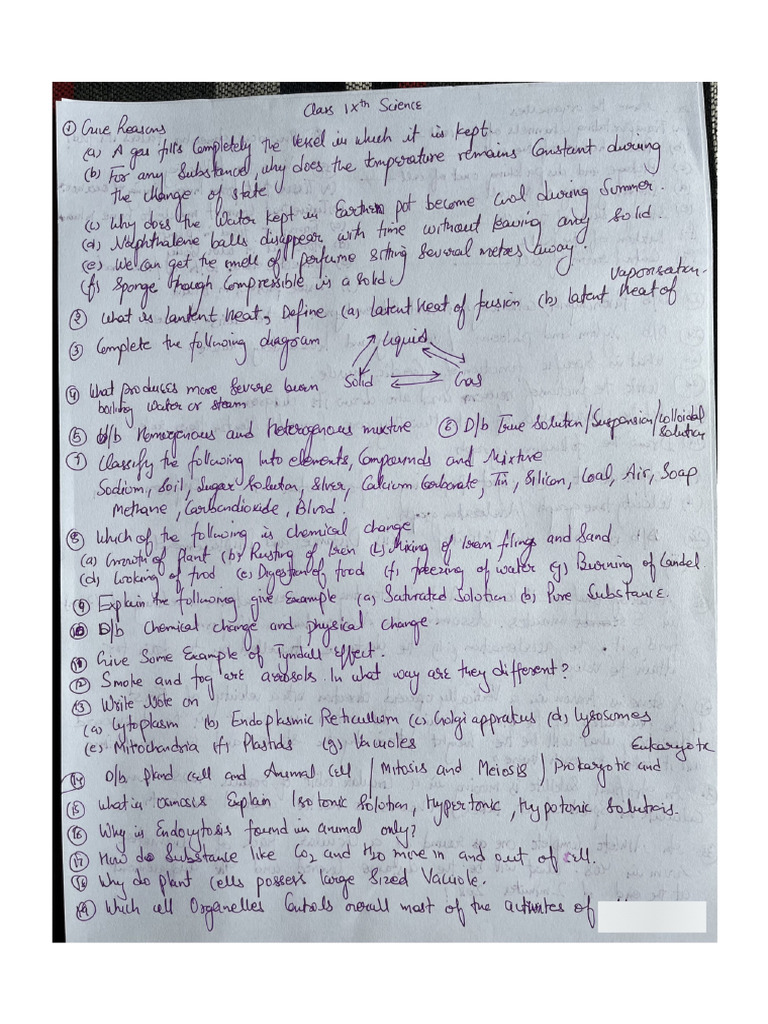 Class IXth Science
① Give Reasons
(a) A gas fills Completely the Vessel in which it is kept.
(b) For any Substance, why does the temperature remains Constant during
the change of state
(c) Why does the Water kept in Earthen pot become cool during Summer.
(d) Naphthalene balls disappear with time without leaving any Solid.
(e) We can get the smell of perfume sitting Several metres away.
(f) Sponge though Compressible is a solid.
② What is lantent heat, Define (a) latent heat of fusion (b) latent heat of vaporisation.
③ Complete the following diagram
Liquid
Solid Gas
④ What produces more Severe burn
boiling water or steam
⑤ D/b Homogenous and heterogenous mixture ⑥ D/b True Solution/Suspension/Colloidal solution
⑦ Classify the following Into elements, Compounds and Mixture
Sodium, Soil, Sugar Solution, Silver, Calcium Carbonate, Tin, Silicon, Coal, Air, Soap
Methane, Carbondioxide, Blood.
⑧ Which of the following is chemical change
(a) Growth of Plant (b) Rusting of Iron (c) Mixing of Iron filings and Sand
(d) Cooking of food (e) Digestion of food (f) freezing of water (g) Burning of Candel
⑨ Explain the following give Example (a) Saturated Solution (b) Pure Substance.
⑩ D/b Chemical change and physical change
⑪ Give Some Example of Tyndall effect.
⑫ Smoke and fog are aerosols. In what way are they different?
⑬ Write Note on
(a) Cytoplasm (b) Endoplasmic Reticullum (c) Golgi appratus (d) Lysosomes
(e) Mitochandria (f) Plastids (g) Vacuoles
⑭ D/b Pland cell and Animal Cell / Mitosis and Meiosis / Prokaryotic and Eukaryotic
⑮ What is osmosis Explain Isotonic Solotion, Hypertonic, Hypotonic solutions.
⑯ Why is Endocytosis found in animal only?
⑰ How do Substance like CO2 and H2O move in and out of cell.
⑱ Why do plant cells possess large Sized Vacuole.
⑲ Which cell Organelles Controls overall most of the activites of